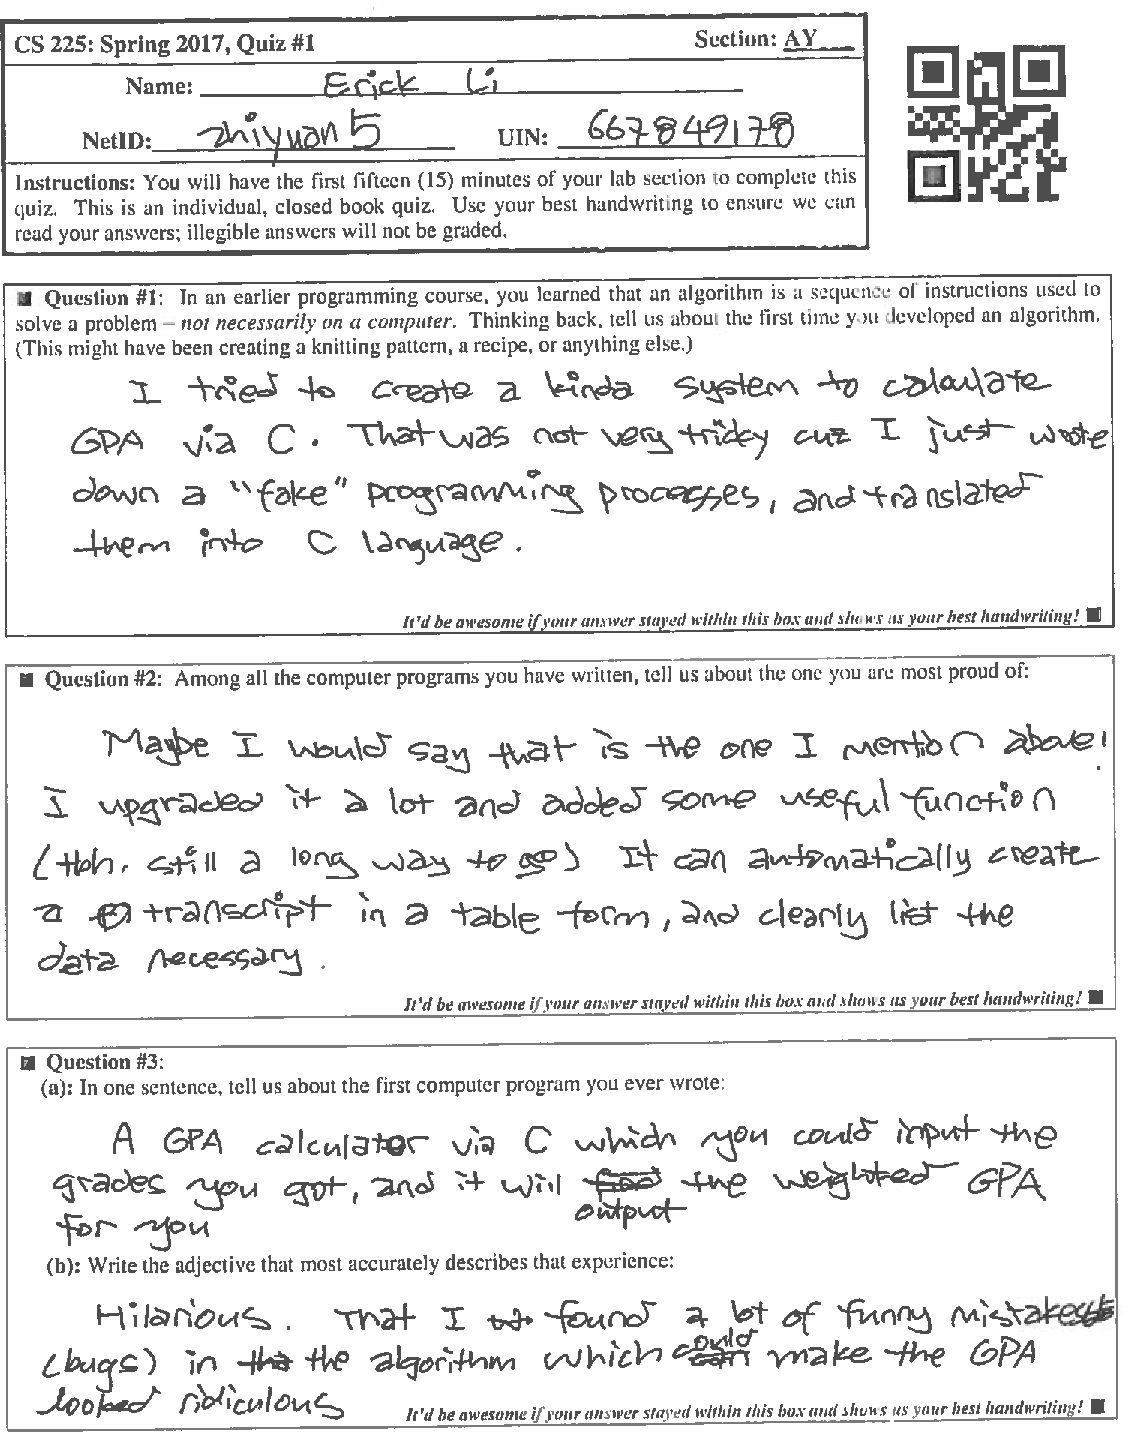 CS 225: Spring 2017, Quiz #1
Section: AY
Name: Erick Li
NetID: zhiyuan5
UIN: 667849178
Instructions: You will have the first fifteen (15) minutes of your lab section to complete this
quiz. This is an individual, closed book quiz. Use your best handwriting to ensure we can
read your answers; illegible answers will not be graded.
Question #1: In an earlier programming course, you learned that an algorithm is a sequence of instructions used to
solve a problem – not necessarily on a computer. Thinking back, tell us about the first time you developed an algorithm.
(This might have been creating a knitting pattern, a recipe, or anything else.)
I tried to create a kinda system to calculate
GPA via C. That was not very tricky cuz I just wrote
down a "fake" programming processes, and translated
them into C language.
It'd be awesome if your answer stayed within this box and shows us your best handwriting!
Question #2: Among all the computer programs you have written, tell us about the one you are most proud of:
Maybe I would say that is the one I mention above!
I upgraded it a lot and added some useful function
(tbh, still a long way to go) It can automatically create
a transcript in a table form, and clearly list the
data necessary.
It'd be awesome if your answer stayed within this box and shows us your best handwriting!
Question #3:
(a): In one sentence, tell us about the first computer program you ever wrote:
A GPA calculator via C which you could input the
grades you got, and it will output the weighted GPA
for you
(b): Write the adjective that most accurately describes that experience:
Hilarious. That I found a lot of funny mistakes
(bugs) in the algorithm which could make the GPA
looked ridiculous
It'd be awesome if your answer stayed within this box and shows us your best handwriting!